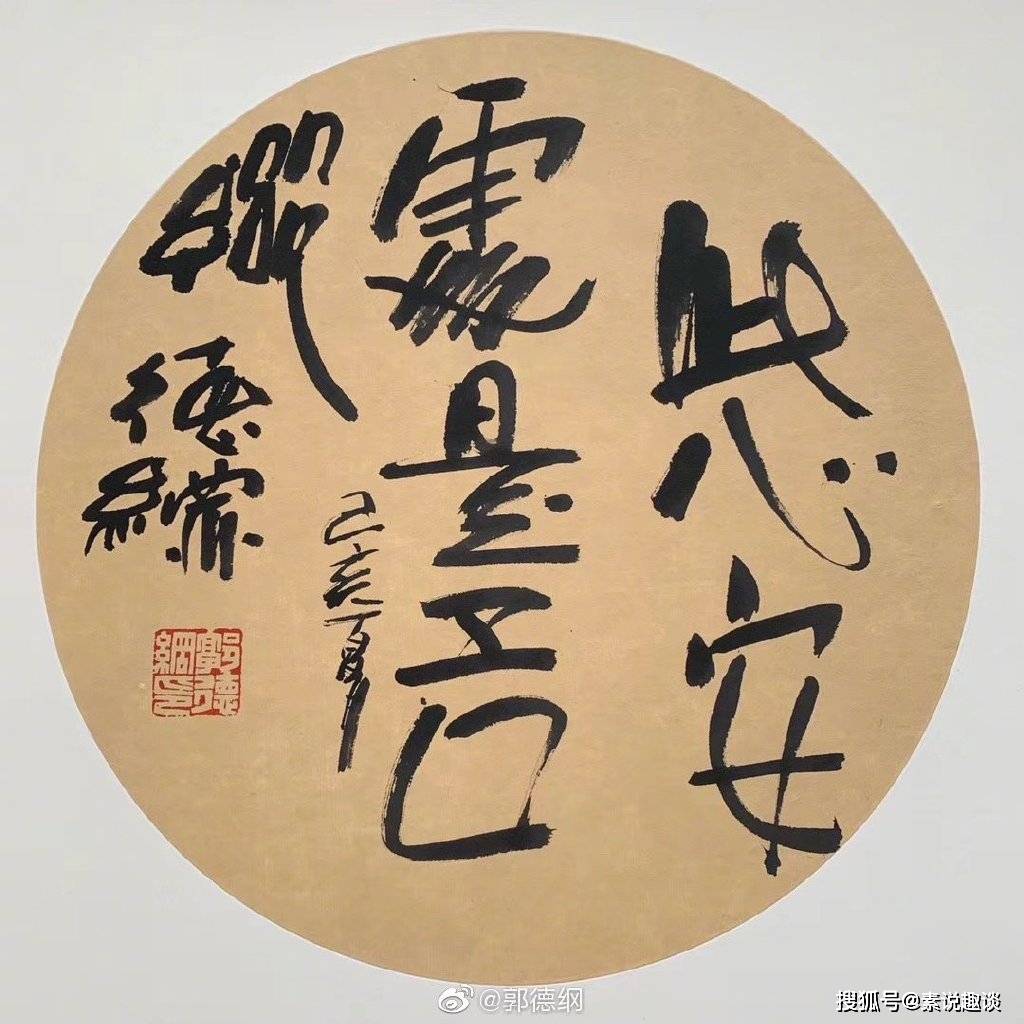 此心安
處是吾
鄉
己亥夏
德綱
郭德
綱印
@郭德纲
搜狐号@素说趣谈